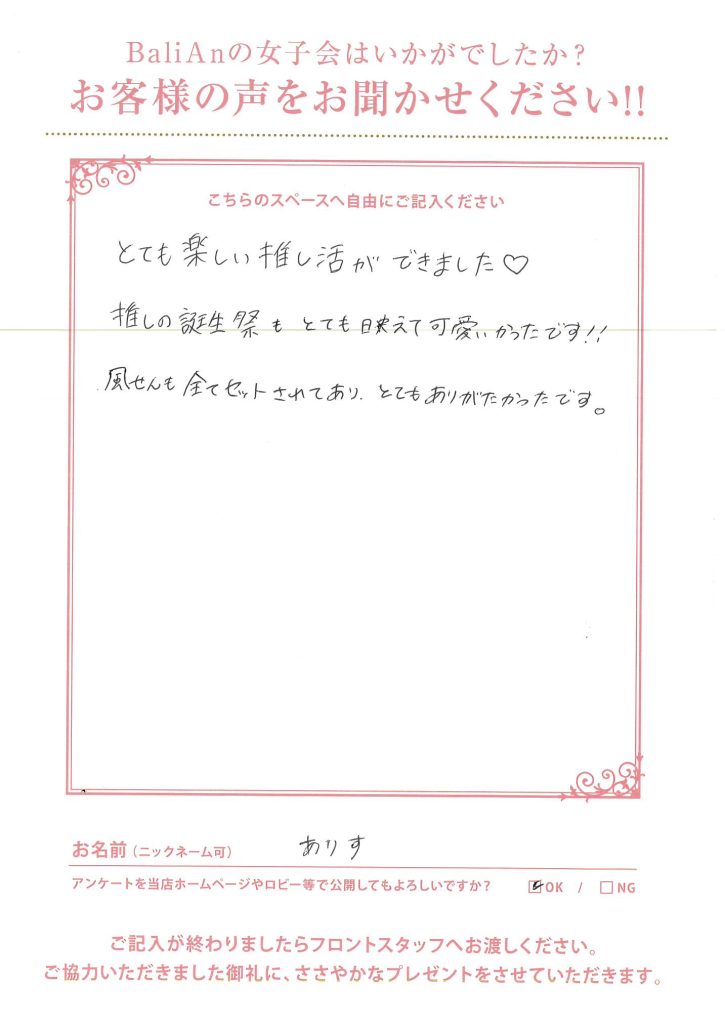 BaliAnの女子会はいかがでしたか?
お客様の声をお聞かせください!!
こちらのスペースへ自由にご記入ください
とても楽しい推し活ができました♡
推しの誕生祭もとても映えて可愛いかったです!!
風せんも全てセットされてあり、とてもありがたかったです。
お名前(ニックネーム可) ありす
アンケートを当店ホームページやロビー等で公開してもよろしいですか? ☑OK / □NG
ご記入が終わりましたらフロントスタッフへお渡しください。
ご協力いただきました御礼に、ささやかなプレゼントをさせていただきます。